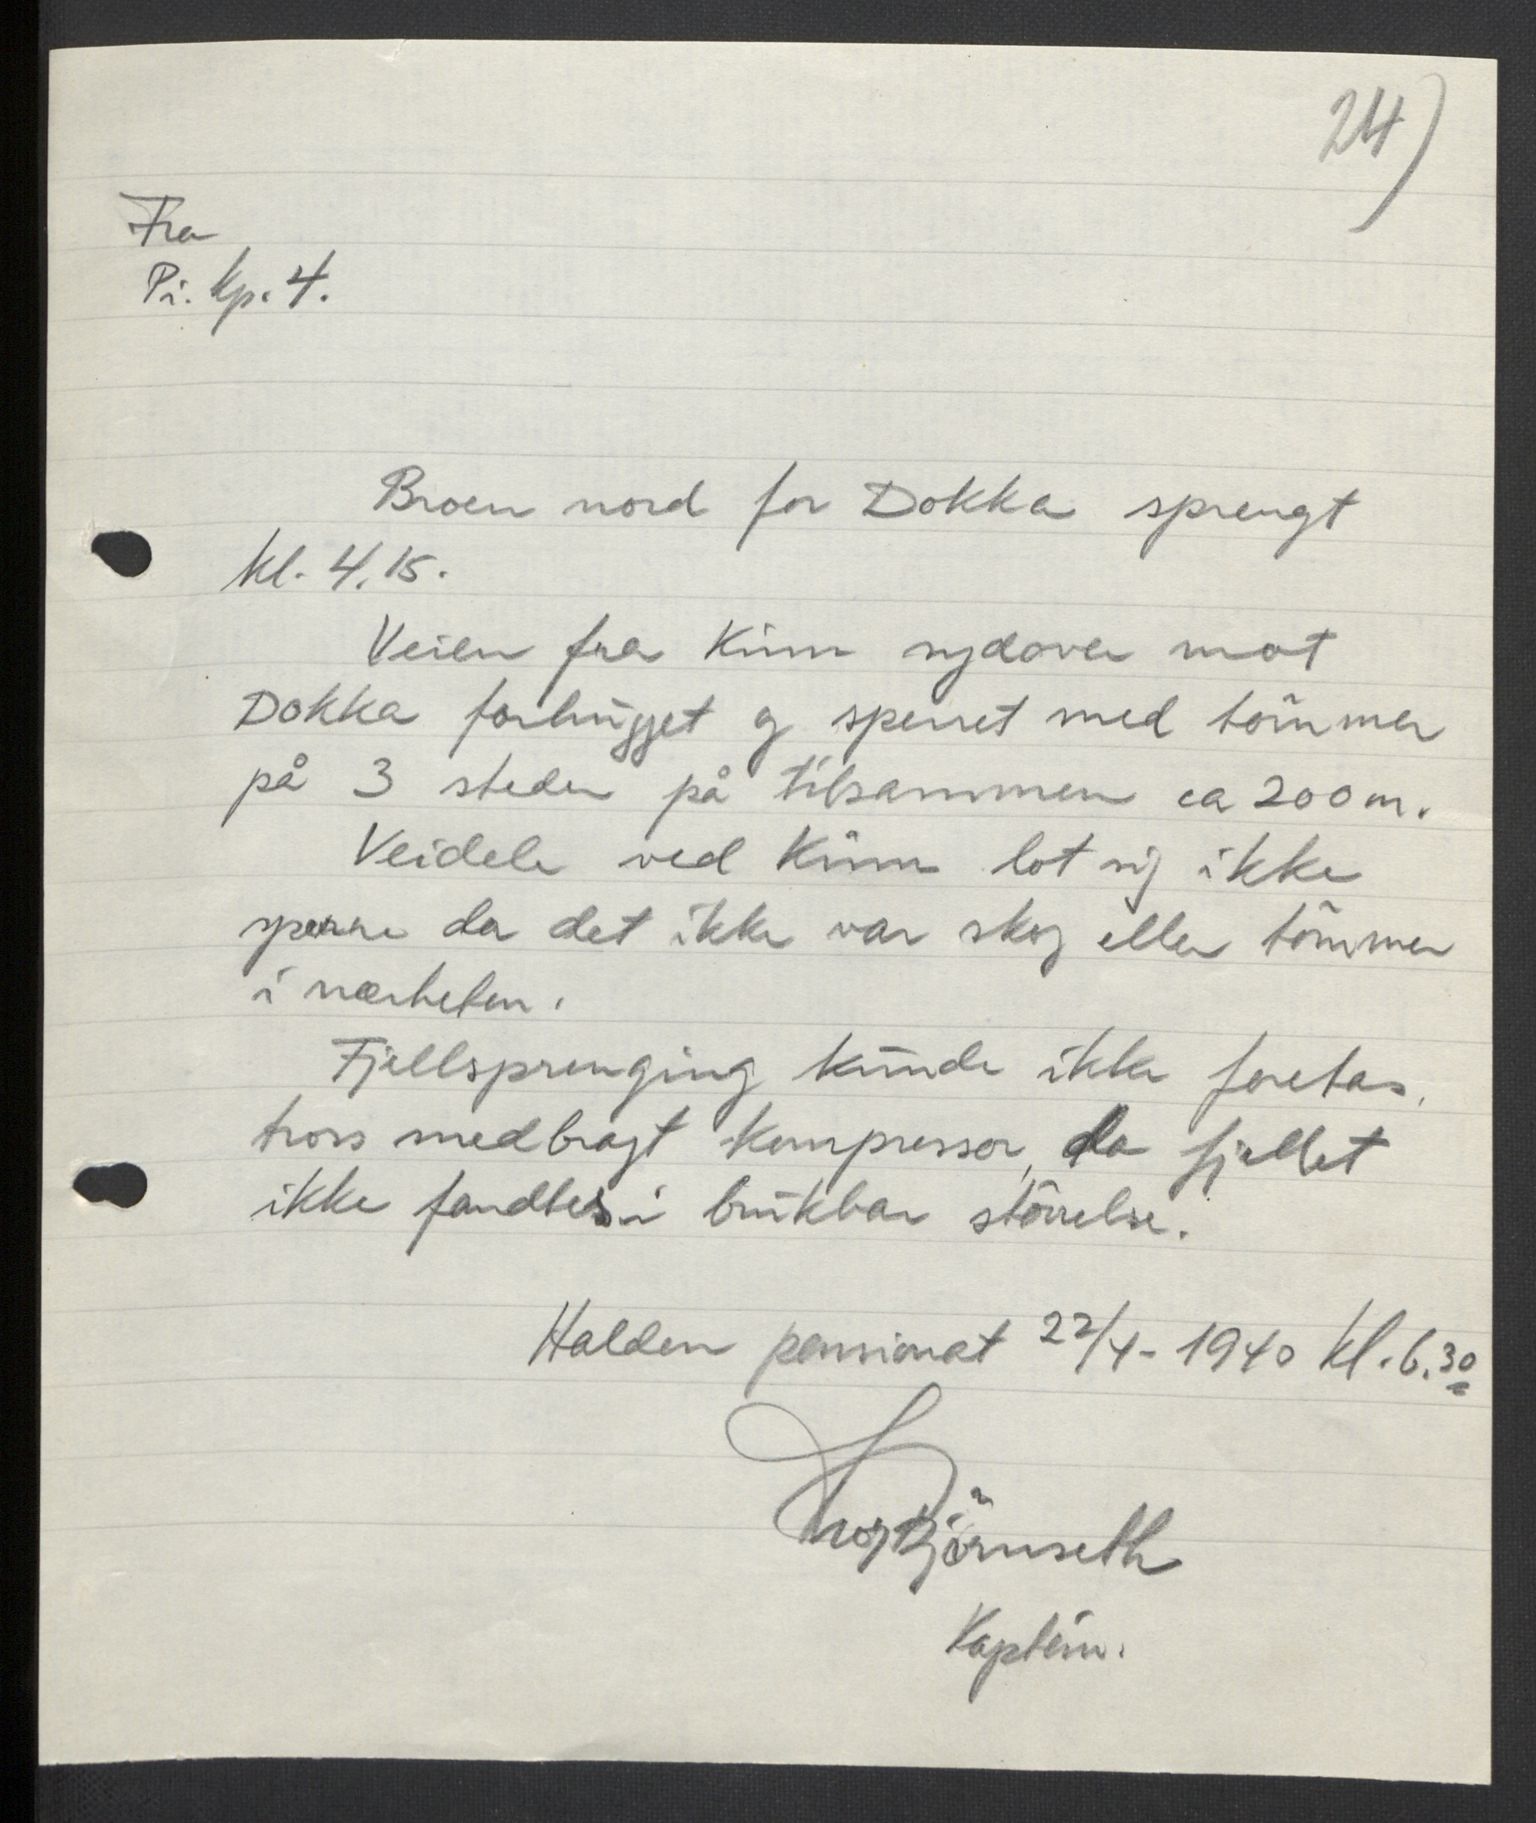 24)
Fra
Pi. kp. 4.
Broen nord for Dokka sprengt
kl. 4.15.
Veien fra Kinn sydover mot
Dokka forhugget og sperret med tömmer
på 3 steder på tilsammen ca 200 m.
Veidele ved Kinn lot sig ikke
sperre da det ikke var skog eller tömmer
i nærheten.
Fjellsprenging kunde ikke foretas,
tross medbragt kompressor, da fjellet
ikke fandtes i brukbar störrelse.
Halden pensionat 22/4 - 1940 kl. 6.30
Björnseth
Kaptein.